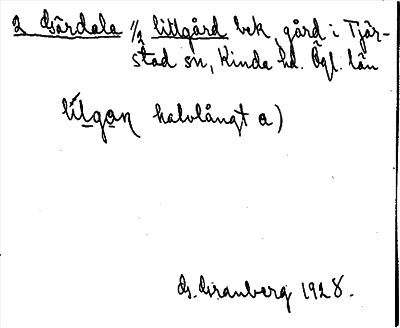 2 Gärdala 1/2 Lillgård bek. gård i Tjär-
stad sn, Kinda hd. Ögl. län
lílgan halvlångt a)
G. Granberg 1928.